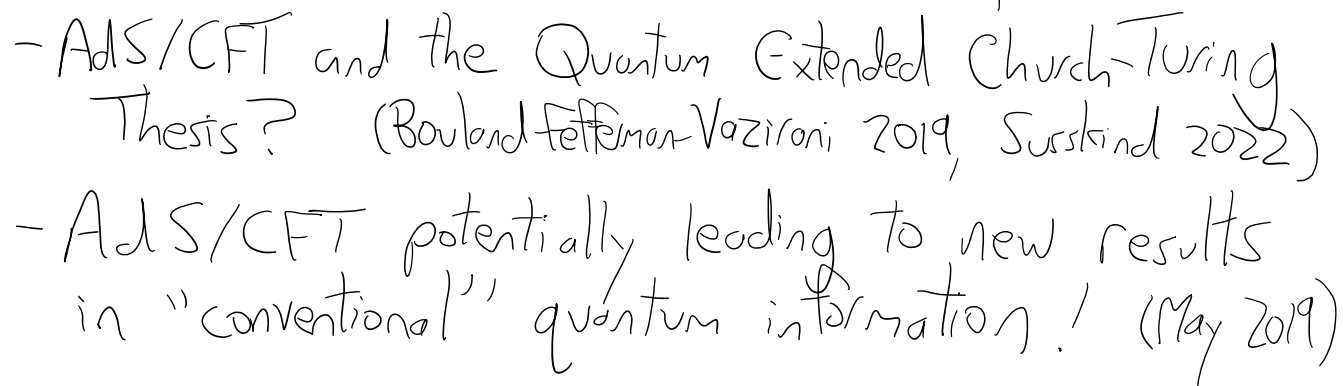 - AdS/CFT and the Quantum Extended Church-Turing
Thesis? (Bouland-Fefferman-Vazirani 2019, Susskind 2022)
- AdS/CFT potentially leading to new results
in "conventional" quantum information! (May 2019)